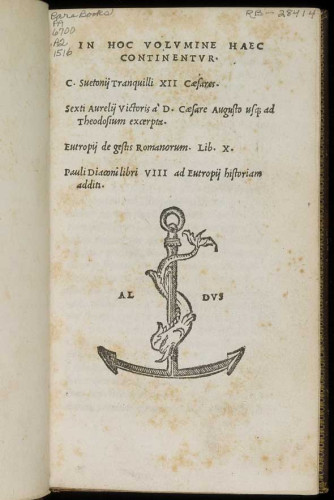 Rare Books
PA
6700
A2
1516
RB-28414
IN HOC VOLVMINE HAEC
CONTINENTVR.
C. Suetonij Tranquilli XII Cæsares.
Sexti Aurelij Victoris a' D. Cæsare Augusto usq; ad
Theodosium excerpta.
Eutropij de gestis Romanorum. Lib. X.
Pauli Diaconi libri VIII ad Eutropij historiam
additi.
AL DVS